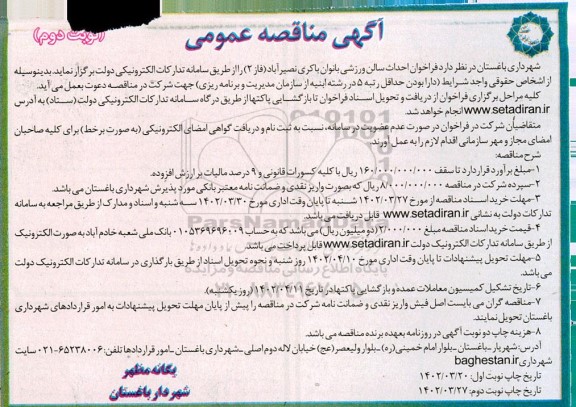 آگهی مناقصه عمومی
(نوبت دوم)
شهرداری باغستان در نظر دارد فراخوان احداث سالن ورزشی بانوان باکری نصیرآباد (فاز ۲) را از طریق سامانه تدارکات الکترونیکی دولت برگزار نماید. بدینوسیله
از اشخاص حقوقی واجد شرایط (دارا بودن حداقل رتبه ۵ در رشته ابنیه از سازمان مدیریت و برنامه ریزی) جهت شرکت در مناقصه دعوت بعمل می آید.
کلیه مراحل برگزاری فراخوان از دریافت و تحویل اسناد فراخوان تا بازگشایی پاکتها از طریق درگاه سامانه تدارکات الکترونیکی دولت (ستاد) به آدرس
www.setadiran.ir انجام خواهد شد.
متقاضیان شرکت در فراخوان در صورت عدم عضویت در سامانه، نسبت به ثبت نام و دریافت گواهی امضای الکترونیکی (به صورت برخط) برای کلیه صاحبان
امضای مجاز و مهر سازمانی اقدام لازم را به عمل آورند.
شرح مناقصه:
۱-مبلغ برآورد قرارداد تا سقف ۱۶۰/۰۰۰/۰۰۰/۰۰۰ ریال با کلیه کسورات قانونی و ۹ درصد مالیات بر ارزش افزوده.
۲-سپرده شرکت در مناقصه ۸/۰۰۰/۰۰۰/۰۰۰ ریال که بصورت واریز نقدی و ضمانت نامه معتبر بانکی مورد پذیرش شهرداری باغستان می باشد.
۳-مهلت خرید اسناد مناقصه از مورخ ۱۴۰۲/۰۳/۲۷ شنبه تا پایان وقت اداری مورخ ۱۴۰۲/۰۳/۳۰ سه شنبه و اسناد و مدارک از طریق مراجعه به سامانه
تدارکات دولت به نشانی www.setadiran.ir قابل دریافت می باشد.
۴-قیمت خرید اسناد مناقصه ۲/۰۰۰/۰۰۰ (دو میلیون ریال) می باشد که به حساب ۰۱۰۵۳۶۹۶۹۶۰۰۹ بانک ملی شعبه خادم آباد به صورت الکترونیک
از طریق سامانه تدارکات الکترونیک دولت www.setadiran.ir قابل پرداخت می باشد.
۵-مهلت تحویل پیشنهادات تا پایان وقت اداری مورخ ۱۴۰۲/۰۴/۱۰ روز شنبه و نحوه تحویل اسناد از طریق بارگذاری در سامانه تدارکات الکترونیک دولت می
باشد.
۶-تاریخ تشکیل کمیسیون معاملات عمده و بازگشایی پاکتها در تاریخ ۱۴۰۲/۰۴/۱۱ (روز یکشنبه).
۷-مناقصه گران می بایست اصل فیش واریز نقدی و ضمانت نامه شرکت در مناقصه را پیش از پایان مهلت تحویل پیشنهادات به امور قراردادهای شهرداری
باغستان تحویل نمایند.
۸-هزینه چاپ دو نوبت آگهی در روزنامه بعهده برنده مناقصه می باشد.
آدرس: شهریار-باغستان-بلوار امام خمینی (ره)-بلوار ولیعصر (عج) خیابان لاله دوم اصلی-شهرداری باغستان-امور قراردادها تلفن: ۶۵۲۳۸۰۰۶-۰۲۱ سایت
شهرداری baghestan.ir
تاریخ چاپ نوبت اول: ۱۴۰۲/۰۳/۲۰
تاریخ چاپ نوبت دوم: ۱۴۰۲/۰۳/۲۷
یگانه مظهر
شهردار باغستان